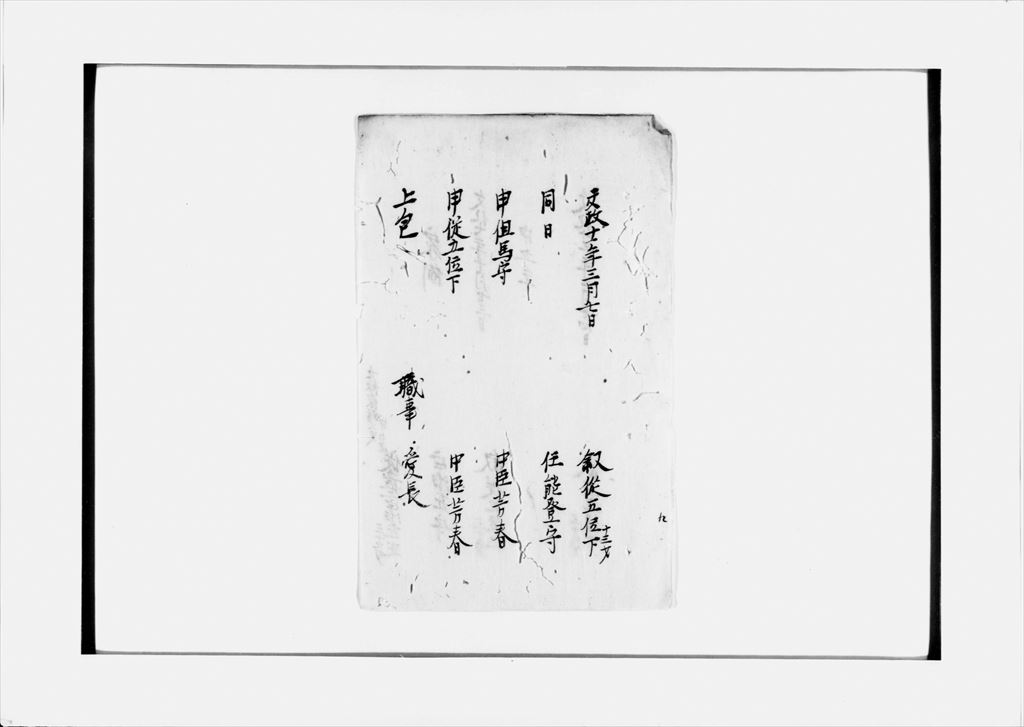 文政十二年三月七日　叙從五位下十三才
同日　任能登守
申但馬守　中臣芳春
申從五位下　中臣芳春
上包　職事　愛長